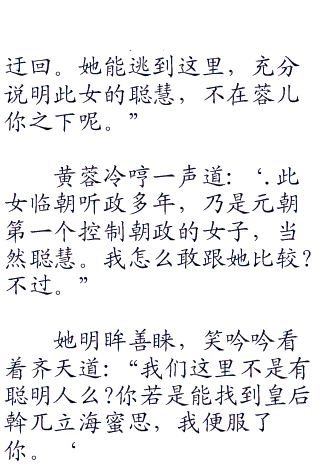 迂回。她能逃到这里，充分
说明此女的聪慧，不在蓉儿
你之下呢。”
黄蓉冷哼一声道：‘.此
女临朝听政多年，乃是元朝
第一个控制朝政的女子，当
然聪慧。我怎么敢跟她比较？
不过。”
她明眸善睐，笑吟吟看
着齐天道：“我们这里不是有
聪明人么?你若是能找到皇后
斡兀立海蜜思，我便服了
你。‘